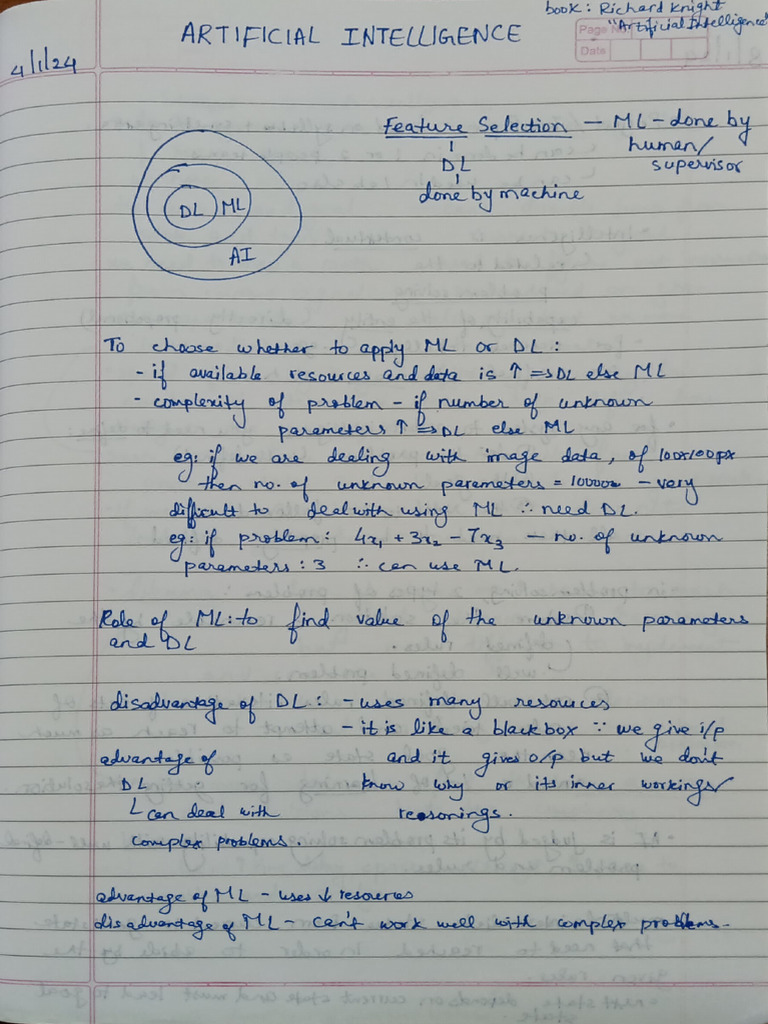 book: Richard Knight
"Artificial Intelligence"
ARTIFICIAL INTELLIGENCE
Page No
Date
4/1/24
Feature Selection — ML - done by
human/
supervisor
DL
done by machine
DL ML
AI
To choose whether to apply ML or DL :
- if available resources and data is ↑ ⇒ DL else ML
- complexity of problem - if number of unknown
parameters ↑ ⇒ DL else ML
eg: if we are dealing with image data, of 100x100px
then no. of unknown parameters = 10000 - very
difficult to deal with using ML ∴ need DL.
eg: if problem: 4x₁ + 3x₂ - 7x₃ — no. of unknown
parameters : 3 ∴ can use ML.
Role of ML: to find value of the unknown parameters
and DL
disadvantage of DL : - uses many resources
- it is like a blackbox ∵ we give i/p
and it gives o/p but we don't
know why or its inner workings/
reasonings.
advantage of
DL
can deal with
complex problems.
advantage of ML - uses ↓ resources
disadvantage of ML - can't work well with complex problems.